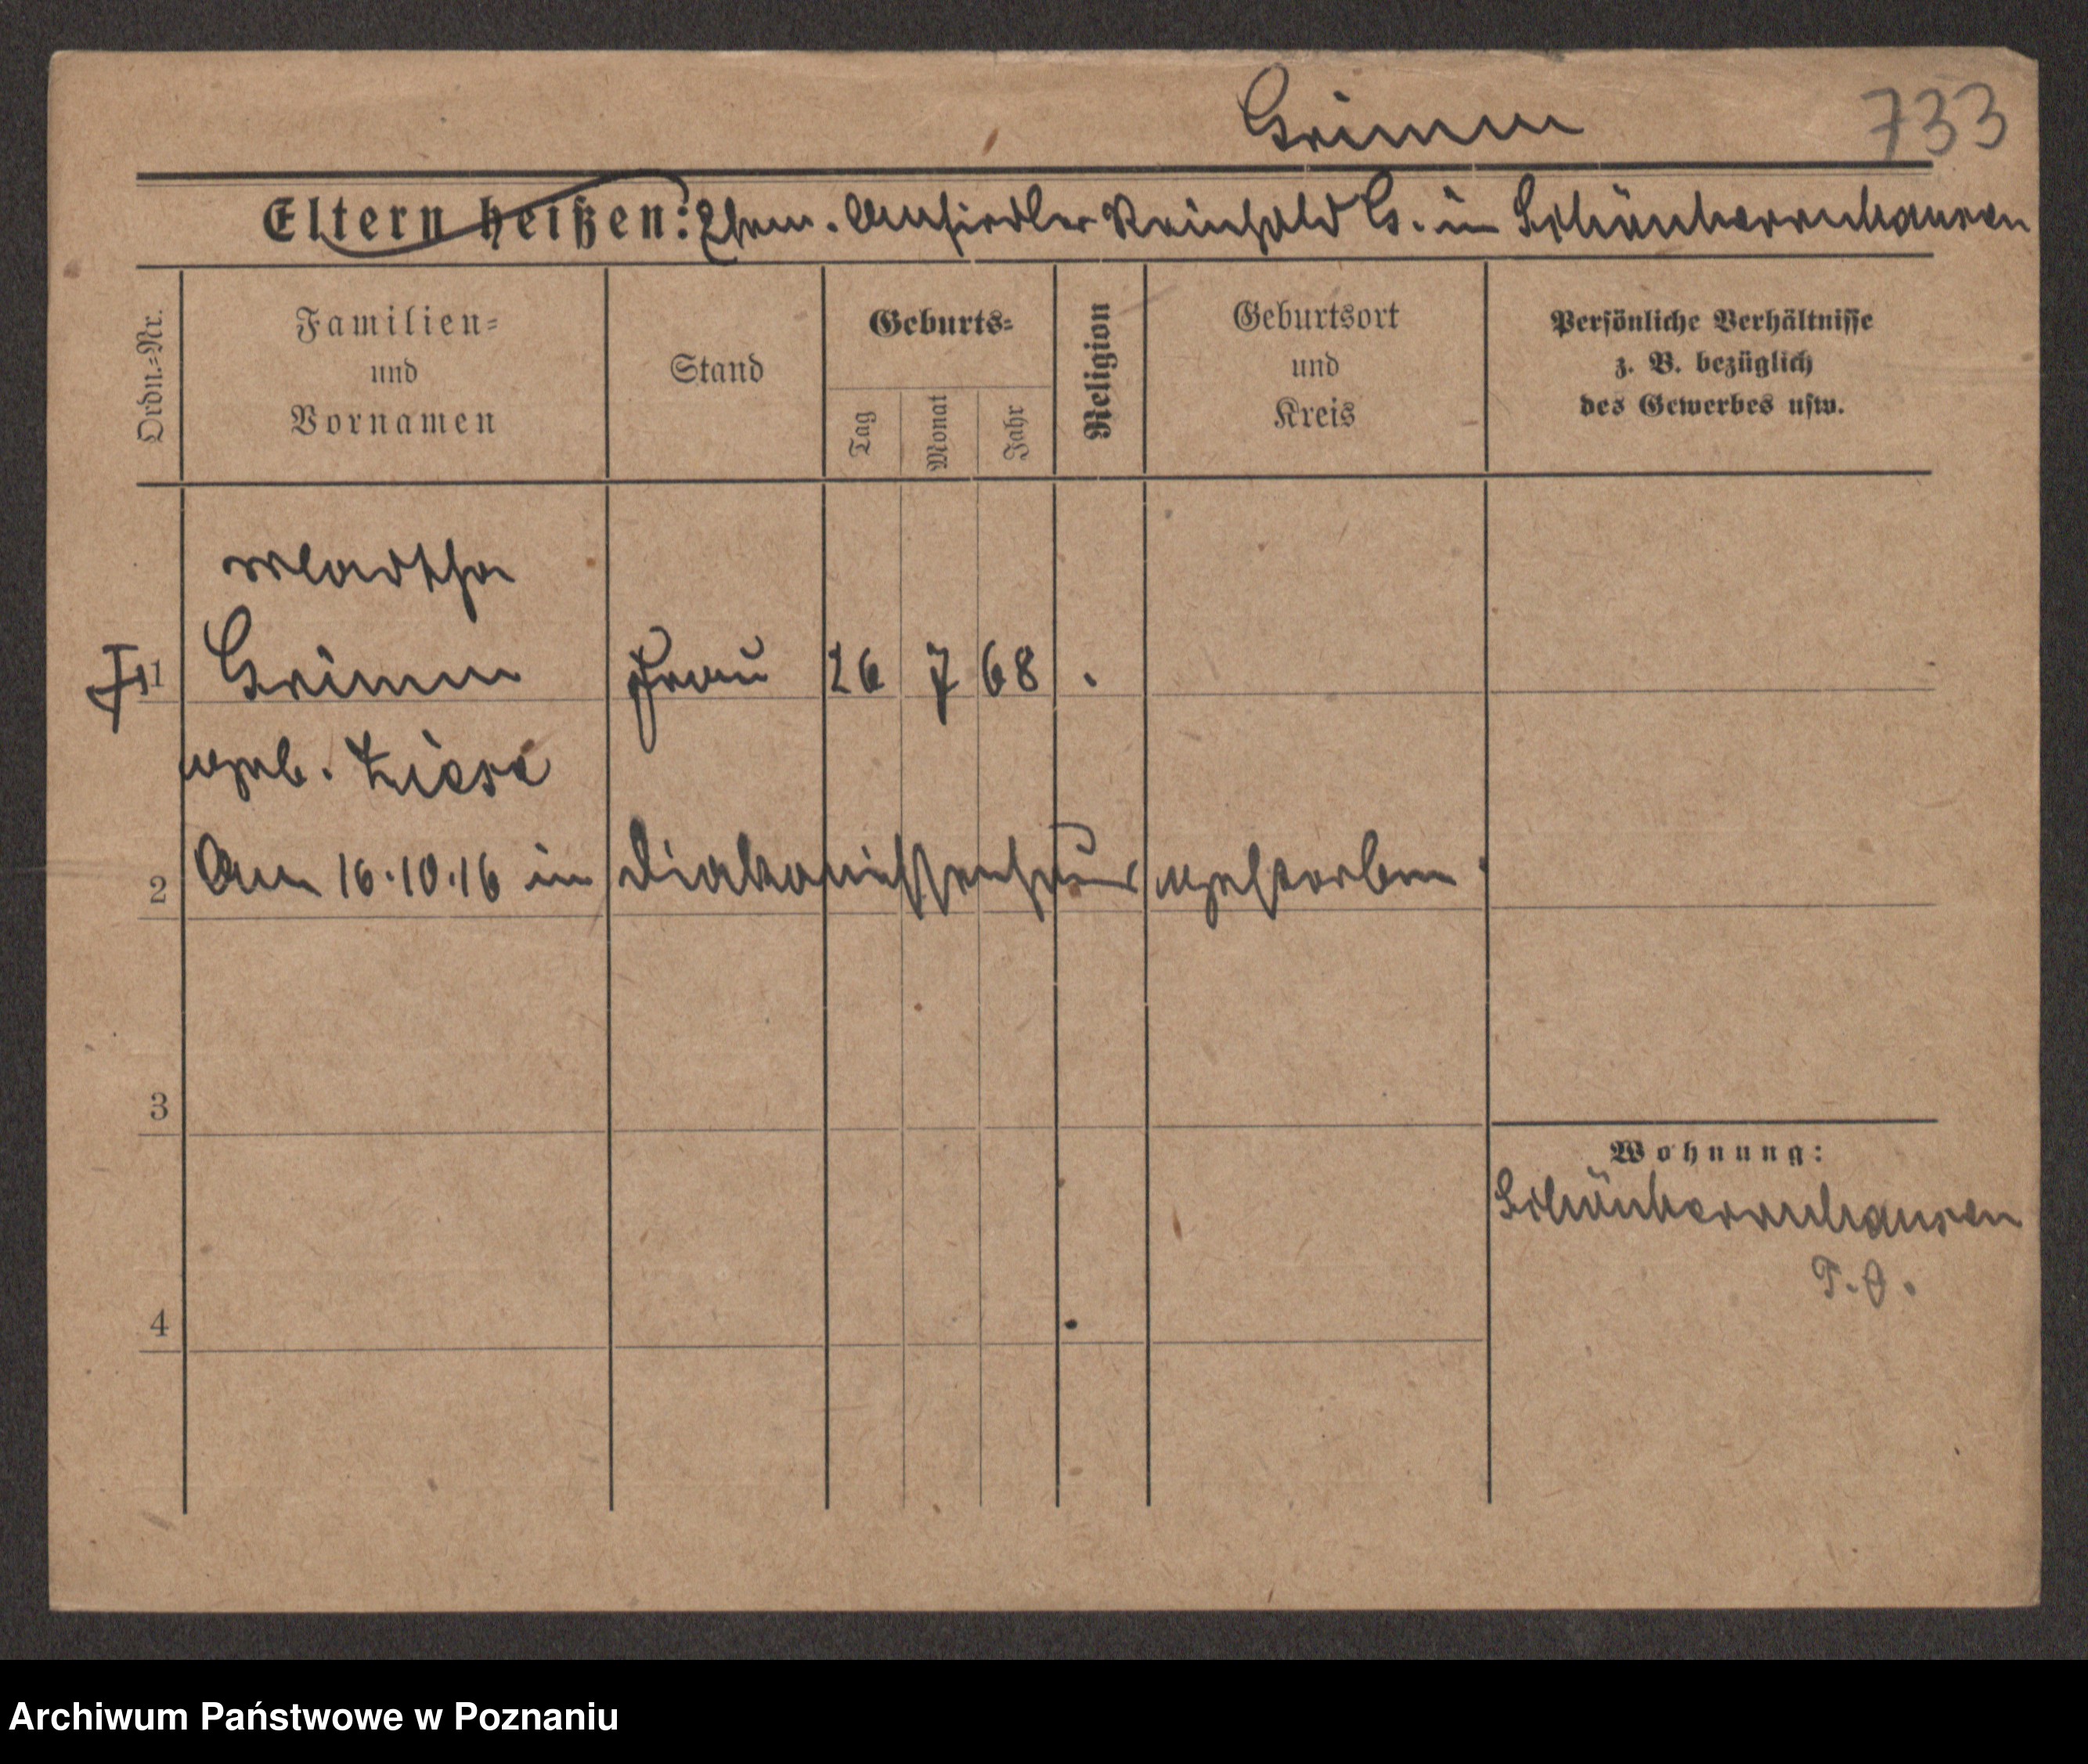 Grimm 733
Eltern heißen: Ehem. Ansiedler Reinhold G. in Schönherrnhausen
Ordn.=Nr.
Familien=
und
Vornamen
Stand
Geburts=
Tag
Monat
Jahr
Religion
Geburtsort
und
Kreis
Persönliche Verhältnisse
z. B. bezüglich
des Gewerbes usw.
Martha
1 Grimm Frau 26 7 68
geb. Ziese
2 Am 16.10.16 im Diakonissenhaus gestorben.
3
Wohnung:
Schönherrnhausen
4
Archiwum Państwowe w Poznaniu